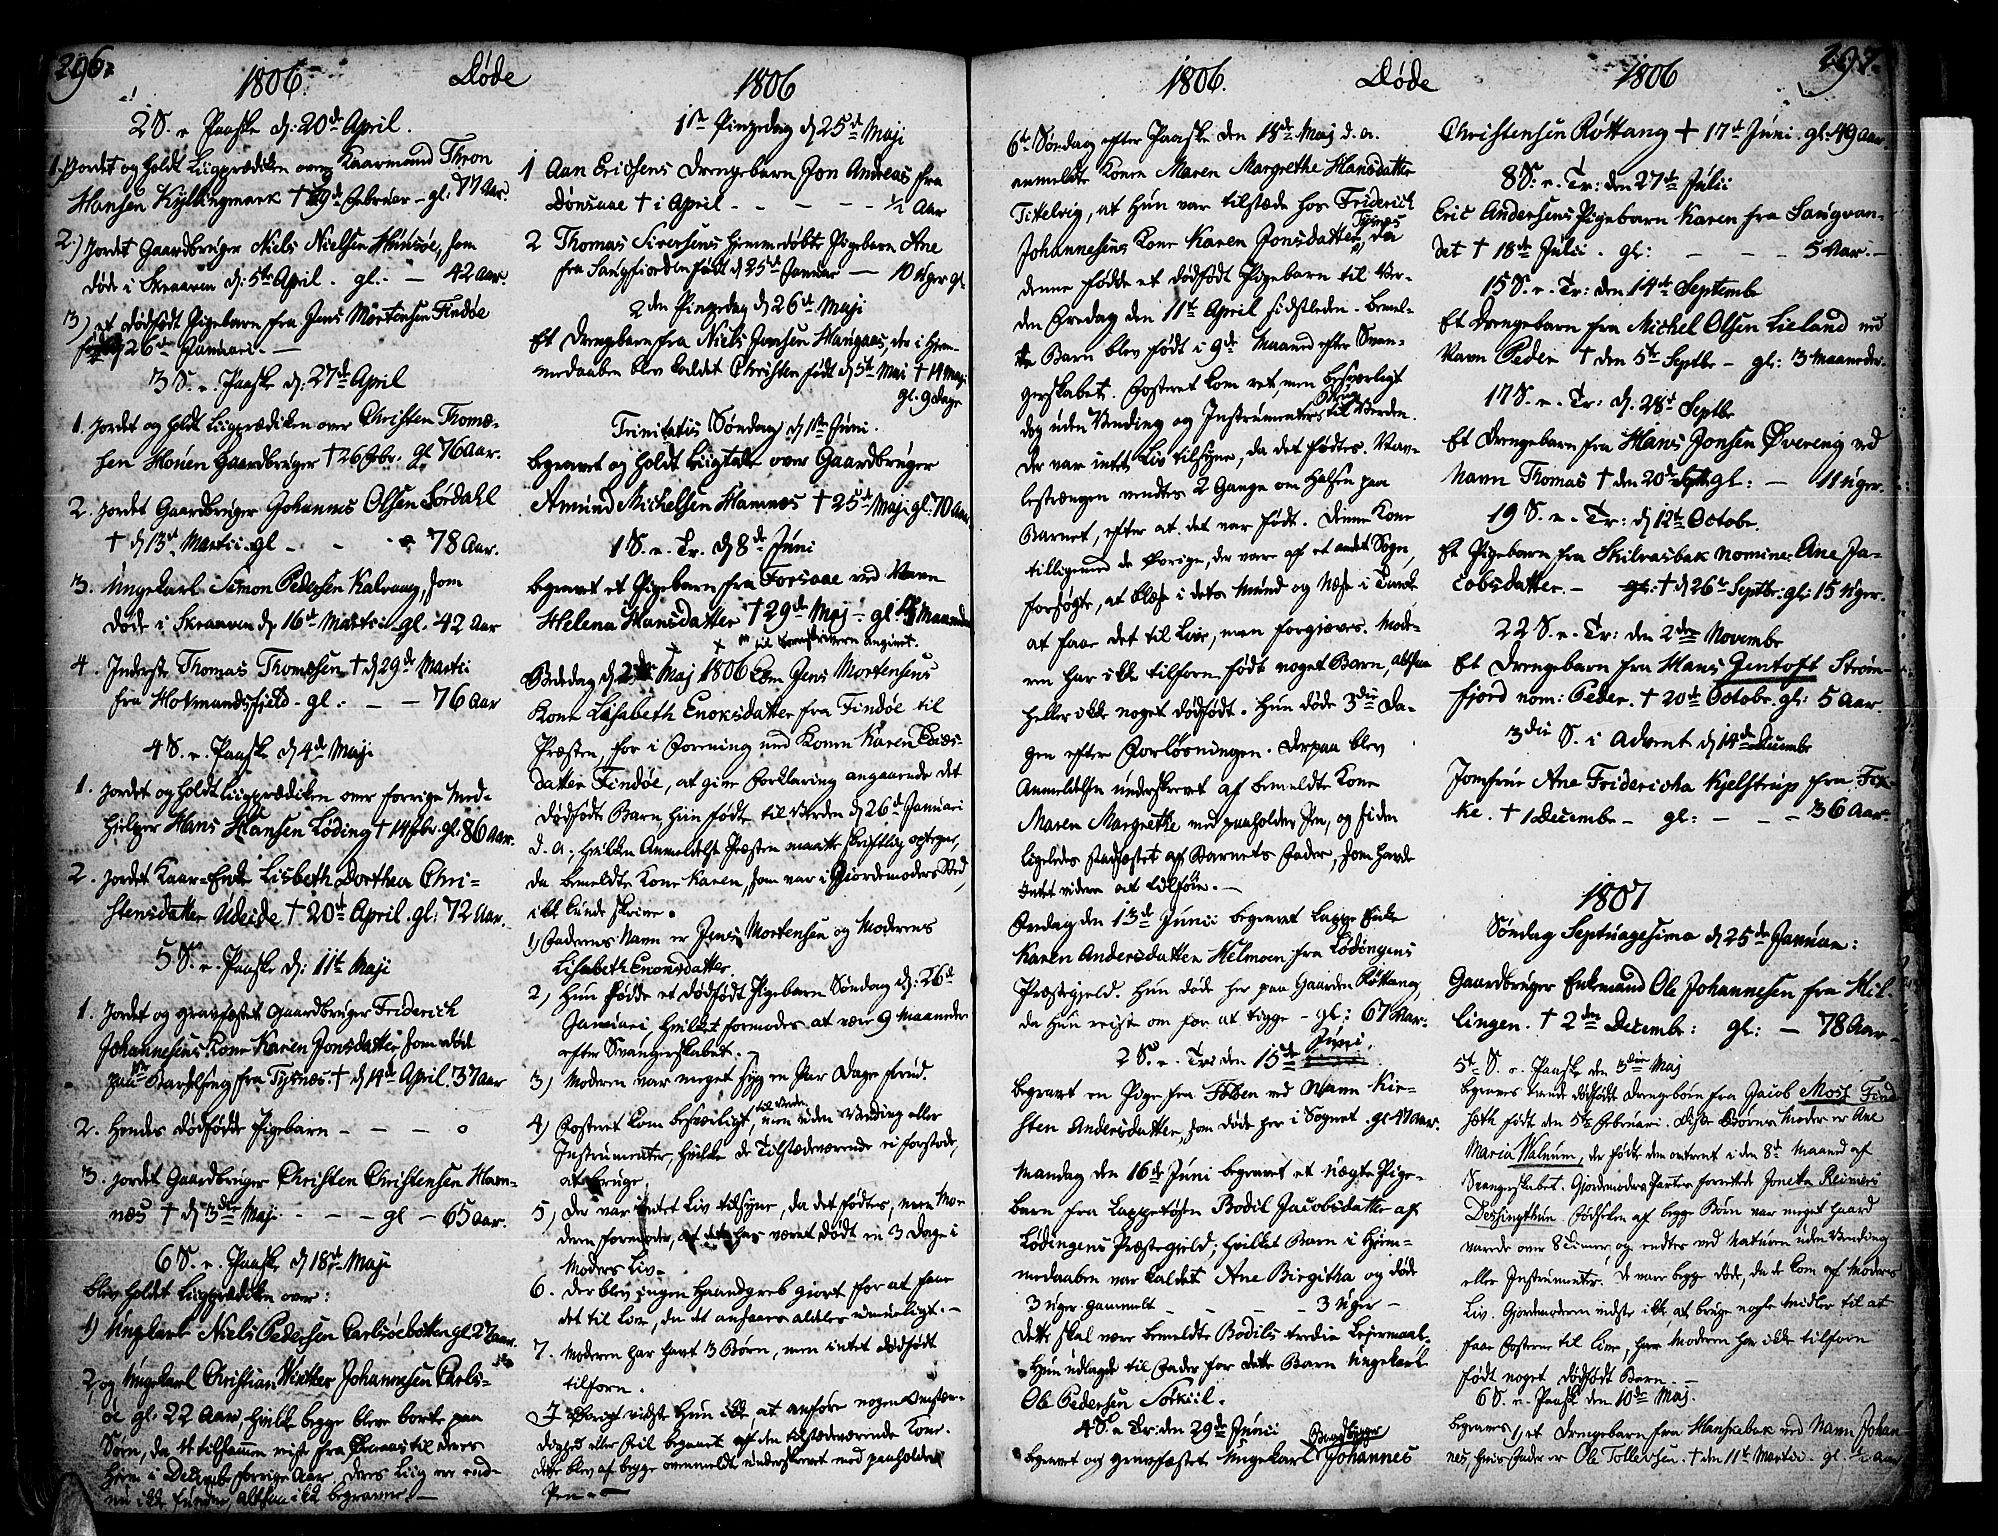 296.
1806. Døde 1806
2 S. e. Paaske d: 20de April.
1. Jordet og holdt Liigprædiken over Kaarmand Thron
Hansen Kyllingmark † 19de Februar - gl. 77 Aar.
2.) Jordet Gaardbruger Niels Nielsen Hunsøe, som
døde i Skraaven d: 5te April. gl: - 42 Aar.
3) et dødfødt Pigebarn fra Jens Mortensen Findøe
26de Januari. -
3 S. e. Paaske d: 27de April
1. Jordet og holdt Liigprædiken over Christen Thomæ-
sen Monen Gaardbruger † 26 Febr. gl 76 Aar.
2. Jordet Gaardbruger Johannes Olsen Sørdahl
† d 13de Martii. gl - - 78 Aar.
3. Ungekarl Simon Pedersen Kalvaag, som
døde i Skraaven d 16de Martii gl. 42 Aar
4. Inderst Thomas Thomæsen † d 29de Martii
fra Hotmandsfjeld. gl: - - 76 Aar
4 S. e. Paaske d 4de Maji
1. Jordet og holdt Liigprædiken over forrige Med-
hjelper Hans Hansen Løding † 14 Febr. gl: 86 Aar.
2. Jordet Kaar-Enke Lisbeth Dorthea Chri-
stensdatter Udeide † 20de April. gl: 72 Aar.
5 S. e. Paaske d: 11te Maji
1. Jordet og gravfæstet Gaardbruger Friderich
Johannesens Kone Karen Jonsdatter som døde
paa Barselseng fra Tysnes. † d 14de April. 37 Aar
2. Hendes dødfødde Pigebarn - - - 0
3. Jordet Gaardbruger Christen Christensen Ham-
næs † d 3die Maji - - - gl - 65 Aar.
6 S. e. Paaske d 18de Maji
blev holdet Liigprædiken over:
1) Ungkarl Niels Pedersen Carlsøebotten gl 27 Aar.
2, og Ungekarl Christian Winther Johannesen Carls-
øe gl: 22 Aar, hvilke begge bleve borte paa
Søen, da 4 tilsammen reiste fra til deres
Hjem i Decembr forrige Aar, deres Liig ere end-
nu ikke fundne, altsaa ikke begravne. -
1ste Pinzedag d 25de Maji
1 Aan Erichsens Drengebarn Jon Andreas fra
Dønsaae † i April - - - - ½ Aar
2 Thomas Siversens hjemmedøbte Pigebarn Ane
fra Langfiorden født d 25de Januar - 10 Uger gl
2den Pinzedag d 26de Maji
Et Drengebarn fra Niels Jonsen Hangnæs, der i Hjem-
medaaben blev kaldet Christen født d 5te Mai † 14 Maji
gl. 9 dage
Trinitatis Søndag d 1ste Juni.
begravet og holdt Liigtale over Gaardbruger
Amund Michelsen Hamnæs † 25de Maji gl. 70 Aar
1 S. e. Tr. d 8de Juni
begravet et Pigebarn fra Forsaae ved Navn
Helena Hansdatter † 29de Maj - gl. Maaneder
Bededag d 2de Maj 1806 kom Jens Mortensens
Kone Lisabeth Enoksdatter fra Findøe til
Præsten, for i Forening med Konen Karen
datter Findøe, at give Forklaring angaaende det
dødfødte Barn hun fødte til Verden d 26de Januari
d. a., hvilken Anmeldelse Præsten maatte skriftlig optegne,
da bemeldte Kone Karen, som var i Giordemoders Sted,
ikke kunde skrive.
1) Faderens Navn er Jens Mortensen og Moderens
Lisabeth Enoksdatter.
2) Hun fødde et dødfødt Pigebarn Søndag d: 26de
Januari, hvilket formodes at være 9 Maaneder
efter Svangerskabet. -
3) Moderen var meget syg en Par Dage forud.
4) Fosteret kom besværligt til Verden, men uden Vending eller
Instrumenter, hvilke de Tilstædeværende ei forstode,
at bruge.
5) Der var intet Liv tilsyne, da det fødtes, men Mo-
deren formoder, at det har været dødt en 3 Dage i
Moders Liv.
6. Der blev ingen Haandgreb giort for at faae
det til Live, da det ansaaes aldeles umueligt. -
7. Moderen har havt 3 Børn, men intet dødfødt
tilforn.
I øvrigt vidste hun ikke, at anføre nogen Omstæn-
dighed eller Feil begaaet af den tilstædeværende Kone.
dette blev af begge ovenmeldte underskrevet med paaholden
Pen. -
297.
1806. Døde 1806
6te Søndag efter Paaske den 18de Maj d. a.
anmeldte Konen Maren Margrethe Hansdatter
Tittelvig, at hun var tilstæde hos Friderich
Johannesens Kone Karen Jonsdatter Tysnes, da
denne fødde et dødfødt Pigebarn til Ver-
den Fredag den 11te April sidstleden. Bemel-
te Barn blev født i 9de Maaned efter Svan-
gerskabet. Fosteret kom ret, men besværligt
dog uden Vending og Instrumenters Brug til Verden.
Der var intet Liv tilsyne, da det fødtes. Navle-
lestrængen vendtes 2 Gange om Halsen paa
Barnet, efter at det var født. Denne Kone
tilligemed de Øvrige, der vare af et andet Sogn,
forsøgte, at blæse i dets Mund og Næse
at faae det til Live, men forgjæves. Mode-
ren har ikke tilforn født noget Barn, altsaa
heller ikke noget dødfødt. Hun døde 3die Da-
gen efter Forløsningen. Derpaa blev
Anmeldelsen underskrevet af bemeldte Kone
Maren Margrethe med paaholden Pen, og siden
ligeledes stadfæstet af Barnets Fader, som havde
Intet videre at tilføie. -
Fredag den 13de Junii begravet Lappe Enke
Karen Andersdatter Helmoen fra Lødingens
Præstegield. Hun døde her paa Gaarden Røttang,
da hun reiste om for at tigge - gl: 67 Aar.
2 S. e. Tr: den 15de Juni.
begravet en Pige fra Foben ved Navn Kir-
sten Andersdatter, som døde her i Sognet. gl 47 Aar.
Mandag den 16de Juni begravet et uægte Pige-
barn fra Lappetøsen Bodil Jacobsdatter af
Lødingens Præstegield; hvilket Barn i Hjem-
medaaben var kaldet Ane Birgitha og døde
3 Uger gammelt - - - 3 Uger -
Dette skal være bemeldte Bodils tredie Leiermaal.
Hun udlagde til Fader for dette Barn Ungekarl
Ole Pedersen Sørkiil.
4 S. e Tr: den 29de Junii
begravet og gravfæstet Ungekarl Gaardbruger Johannes
Christensen Røttang † 17de Juni. gl: 49 Aar.
8 S: e. Tr: den 27de Julii
Eric Andersens Pigebarn Karen fra Saugvan-
det † 18de Julii. gl: - - - 5 Aar. -
15 S. e. Tr: den 14de Septembr
Et Drengebarn fra Michel Olsen Lieland ved
Navn Peder † den 5te Septbr - gl: 3 Maaneder.
17 S. e. Tr: d: 28de Septbr
Et Drengebarn fra Hans Jonsen Øvereng ved
Navn Thomas † den 20de Septbr gl: - 11 Uger.
19 S. e. Tr: d 12te Octobr.
Et Pigebarn fra Skilvasbak nomine: Ane Ja-
cobsdatter. - † d 26de Septbr: gl: 15 Uger.
22 S. e. Tr: den 2den Novembr
Et Drengebarn fra Hans Gentoft Strøm-
fjord nom: Peder. † 20de Octobr. gl: 5 Aar.
3die S. i Advent d 14de Decembr
Jomfrue Ane Fridericha Kjelstrup fra Fik-
ke. † 1 Decembr - gl: - - - 36 Aar.
1807
Søndag Septuagesima d 25de Januar:
Gaardbruger Enkemand Ole Johannesen fra Hil-
lingen. † 2den Decembr: gl: - 78 Aar -
5te S. e. Paaske den 3die Maj
begraves tvende dødfødte Drengebørn fra Jacob Mosf Find-
sæth født den 5te Februari. Disse Børns Moder er Ane
Maria Walnum, der fødte dem omtrent i den 8de Maaned af
Svangerskabet. Giordemoders Parten forrettede Joneta Reiners
Dessingthun. Fødselen af begge Børn var meget haard
varede over 8 Timer og endtes ved Naturen uden Vending
eller Instrumenter. De vare begge døde, da de kom af Moders
Liv. Giordemoderen vidste ikke, at bruge nogle Midler til at
faae Fostrene til Live; har Moderen har ikke tilforn
født noget dødfødt Barn. -
6 S. e. Paaske den 10de Maj.
begraves 1) et Drengebarn fra Hanskabak ved Navn Johan
nes, hvis Fader er Ole Tollersen. † den 11te Martii. gl. ½ Aar